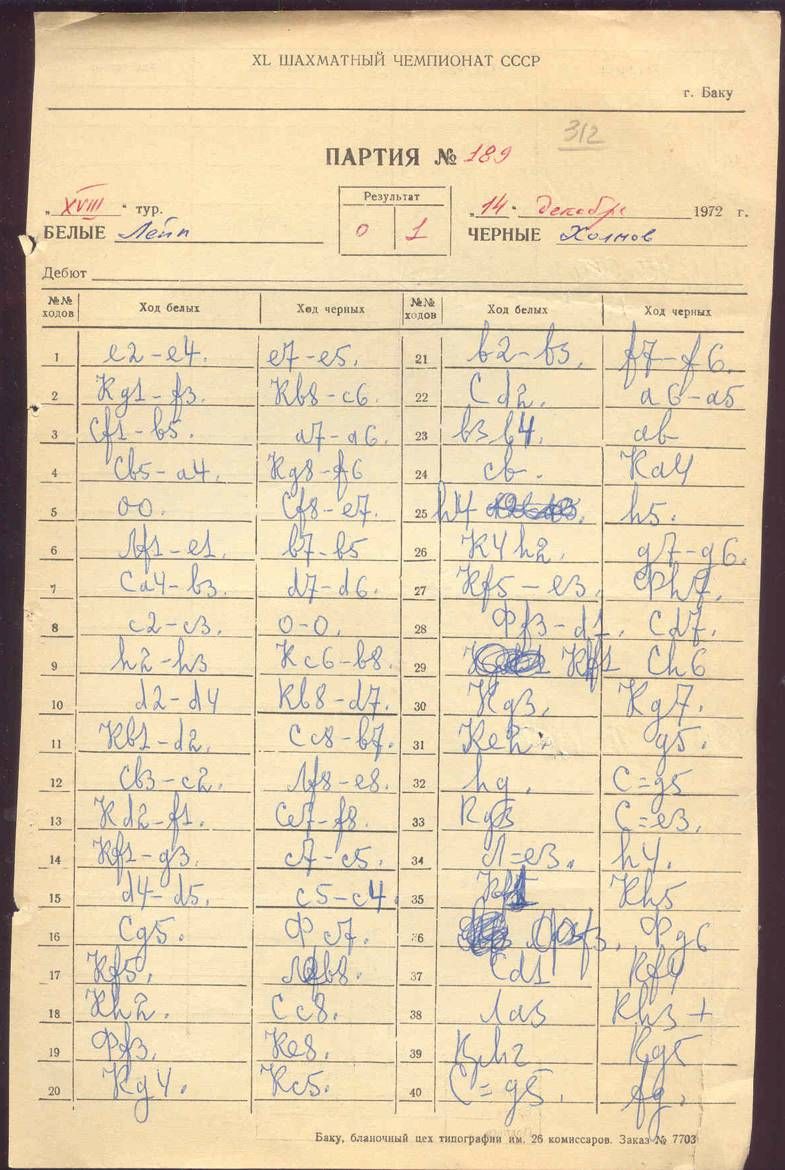 XL ШАХМАТНЫЙ ЧЕМПИОНАТ СССР
г. Баку
312
ПАРТИЯ № 189
„XVIII“ тур.
Результат
0 1
„14“ декабря 1972 г.
БЕЛЫЕ Лейн
ЧЕРНЫЕ Холмов
Дебют
№№ ходов Ход белых Ход черных №№ ходов Ход белых Ход черных
1 e2-e4. e7-e5. 21 b2-b3. f7-f6.
2 Кg1-f3. Кb8-c6. 22 Сd2. a6-a5
3 Сf1-b5. a7-a6. 23 b3b4. ab
4 Сb5-a4. Кg8-f6 24 cb. Кa4
5 00. Сf8-e7. 25 h4 h5.
6 Лf1-e1. b7-b5 26 К4h2. g7-g6.
7 Сa4-b3. d7-d6. 27 Кf5-e3. Фh7.
8 c2-c3. 0-0. 28 Фf3-d1. Сd7.
9 h2-h3 Кc6-b8. 29 Кf1 Сh6
10 d2-d4 Кb8-d7. 30 Кg3. Кg7.
11 Кb1-d2. Сc8-b7. 31 Кe2. g5.
12 Сb3-c2. Лf8-e8. 32 hg. С=g5
13 Кd2-f1. Сe7-f8. 33 Кg3 С=e3.
14 Кf1-g3. c7-c5. 34 Л=e3. h4.
15 d4-d5. c5-c4. 35 Кf1 Кh5
16 Сg5. Фc7. 36 Фf3. Фg6
17 Кf5. Лfb8. 37 Сd1 Кf4
18 Кh2. Сc8. 38 Лa3 Кh3+
19 Фf3. Кe8. 39 Крh2 Кg5
20 Кg4. Кc5. 40 С=g5. fg.
Баку, бланочный цех типографии им. 26 комиссаров. Заказ № 7703